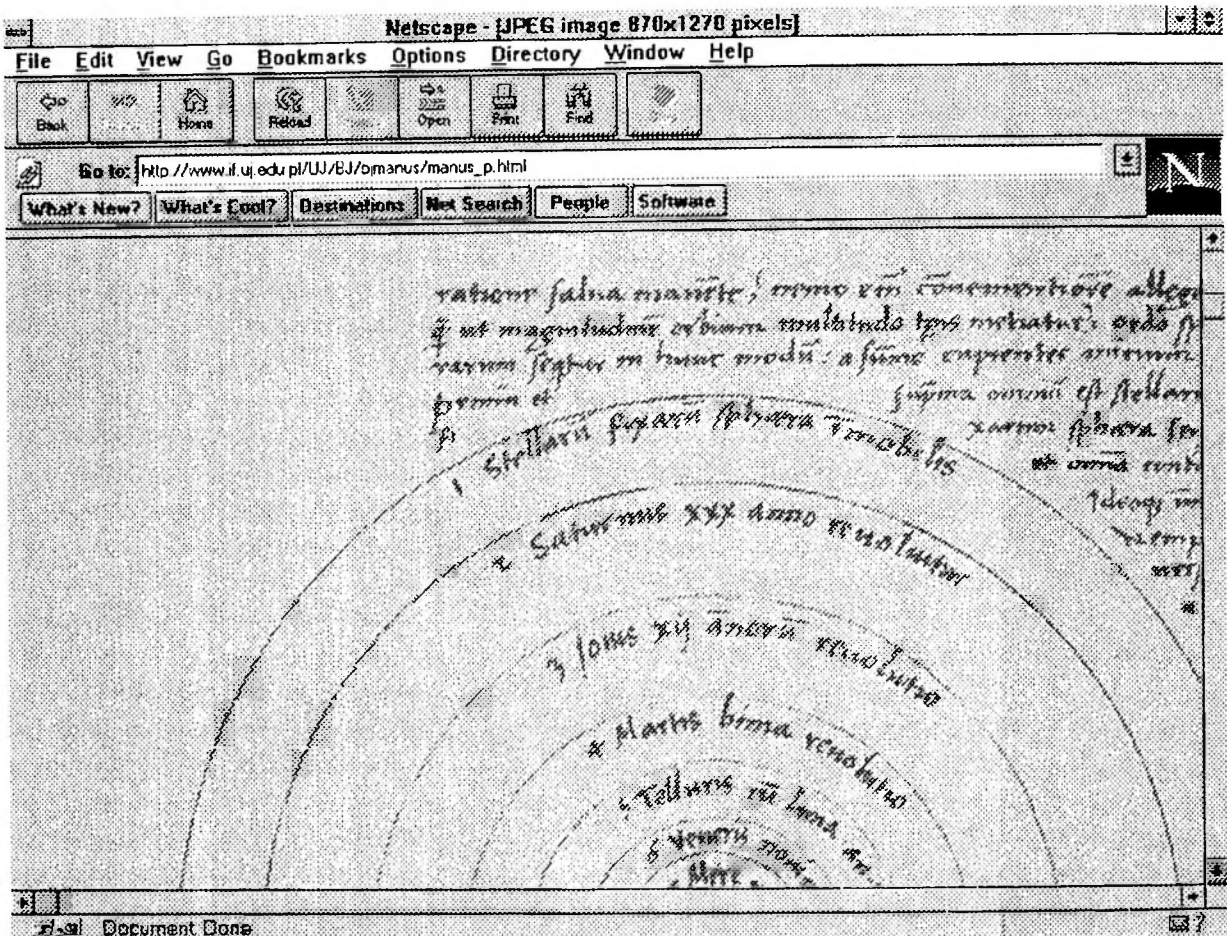 Netscape - [JPEG image 870x1270 pixels]
File Edit View Go Bookmarks Options Directory Window Help
Back Home Reload Open Print Find
Go to: http://www.if.uj.edu.pl/UJ/BJ/bjmanus/manus_p.html
N
What's New? What's Cool? Destinations Net Search People Software
ratione salua manēte, nemo em̄ conuenientiorē allega
q̄ ut magnitudinē orbium multitudo tp̄is metiatur: ordo sp
rarum seq̄tur in hunc modū: a summo capientes
primū et suprema omniū est stellarū
xarum sphæra se
et omnia conti
Ideoq̄
1 Stellarū fixarū sphæra īmobilis
2 Saturnus xxx anno reuoluitur
3 Iouis xij annorū reuolutio
4 Martis bima reuolutio
5 Telluris cū Luna an
6 Veneris nonim
Merc
Document Done